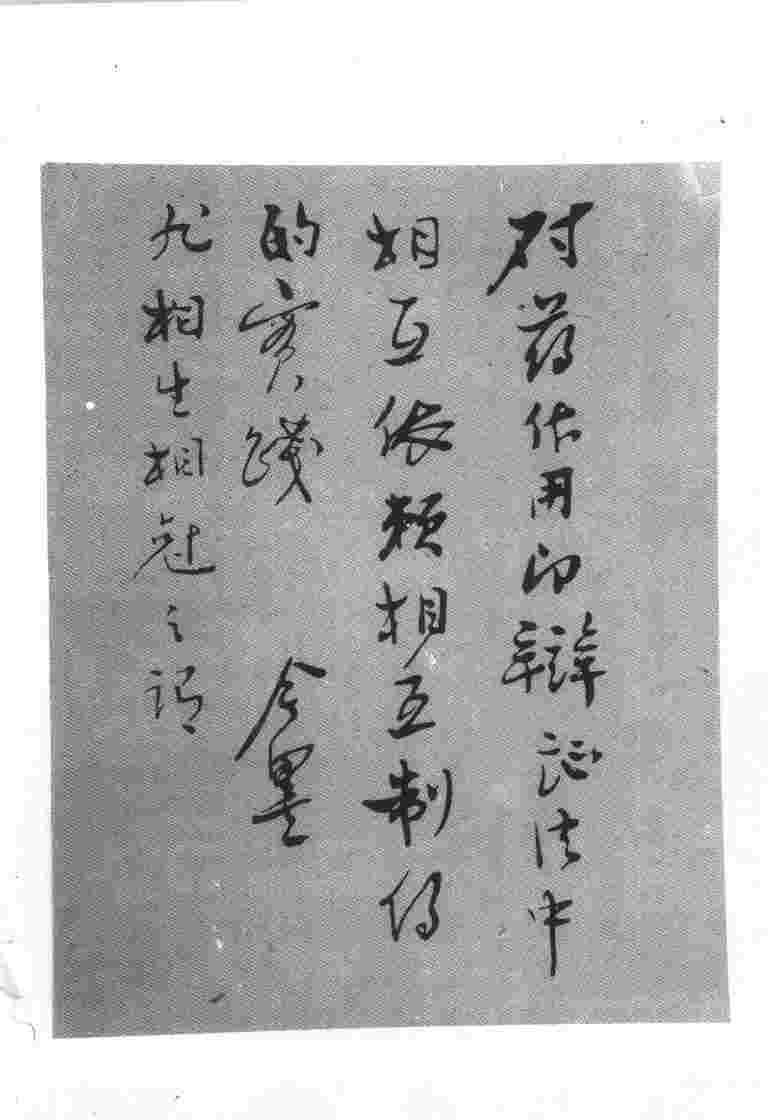 对药作用即辩证法中
相互依赖相互制约
的实践 今墨
尤相生相尅之谓